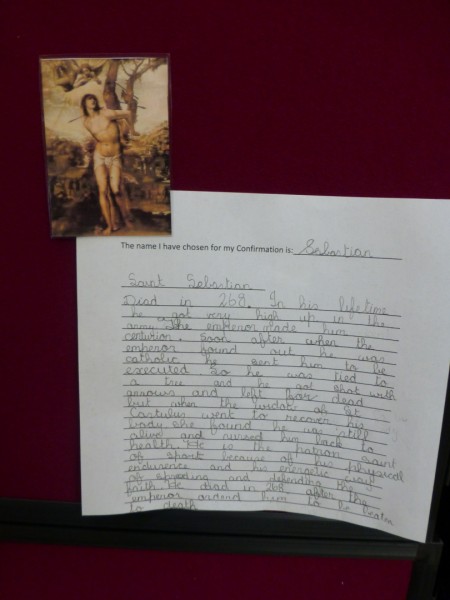 The name I have chosen for my Confirmation is: Sebastian
Saint Sebastian
Died in 268. In his lifetime
he got very high up in the
army. The emperor made him
centurion. Soon after when the
emperor found out he was
catholic he sent him to be
executed so he was tied to
a tree and he got shot with
arrows and left for dead
but when the widow of St.
Castulus went to recover his
body she found he was still
alive and nursed him back to
health. He is the patron saint
of sport because of his physical
endurence and his energetic way
of spreading and defending his
faith. He died in 268 after the
emperor orderd him to be beaten
to death